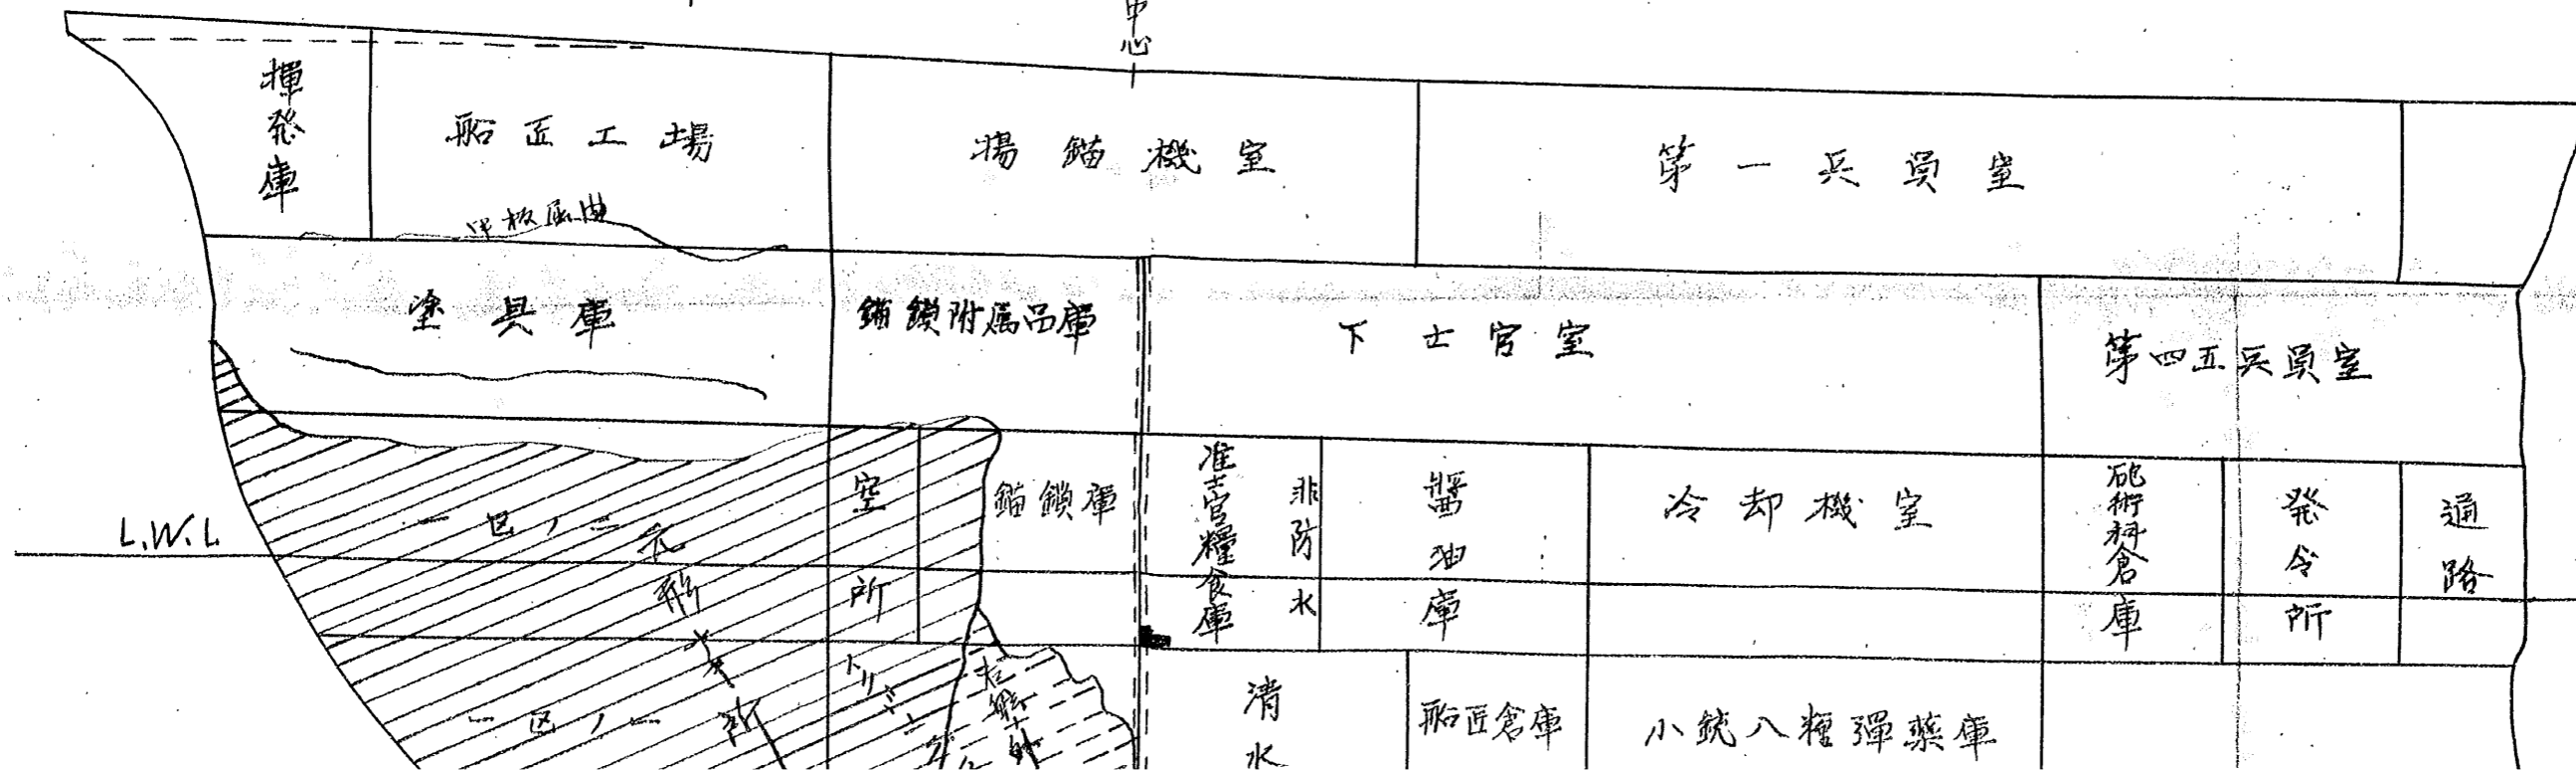 中心
揮発庫
船匠工場
揚錨機室
第一兵員室
甲板屈曲
塗具庫
錨鎖附属品庫
下士官室
第四五兵員室
L.W.L
一区ノ二
空所
錨鎖庫
准士官糧食庫
非防水
醤油庫
冷却機室
砲術科倉庫
発令所
通路
一区ノ一
トリミング
清水
船匠倉庫
小銃八糎弾薬庫